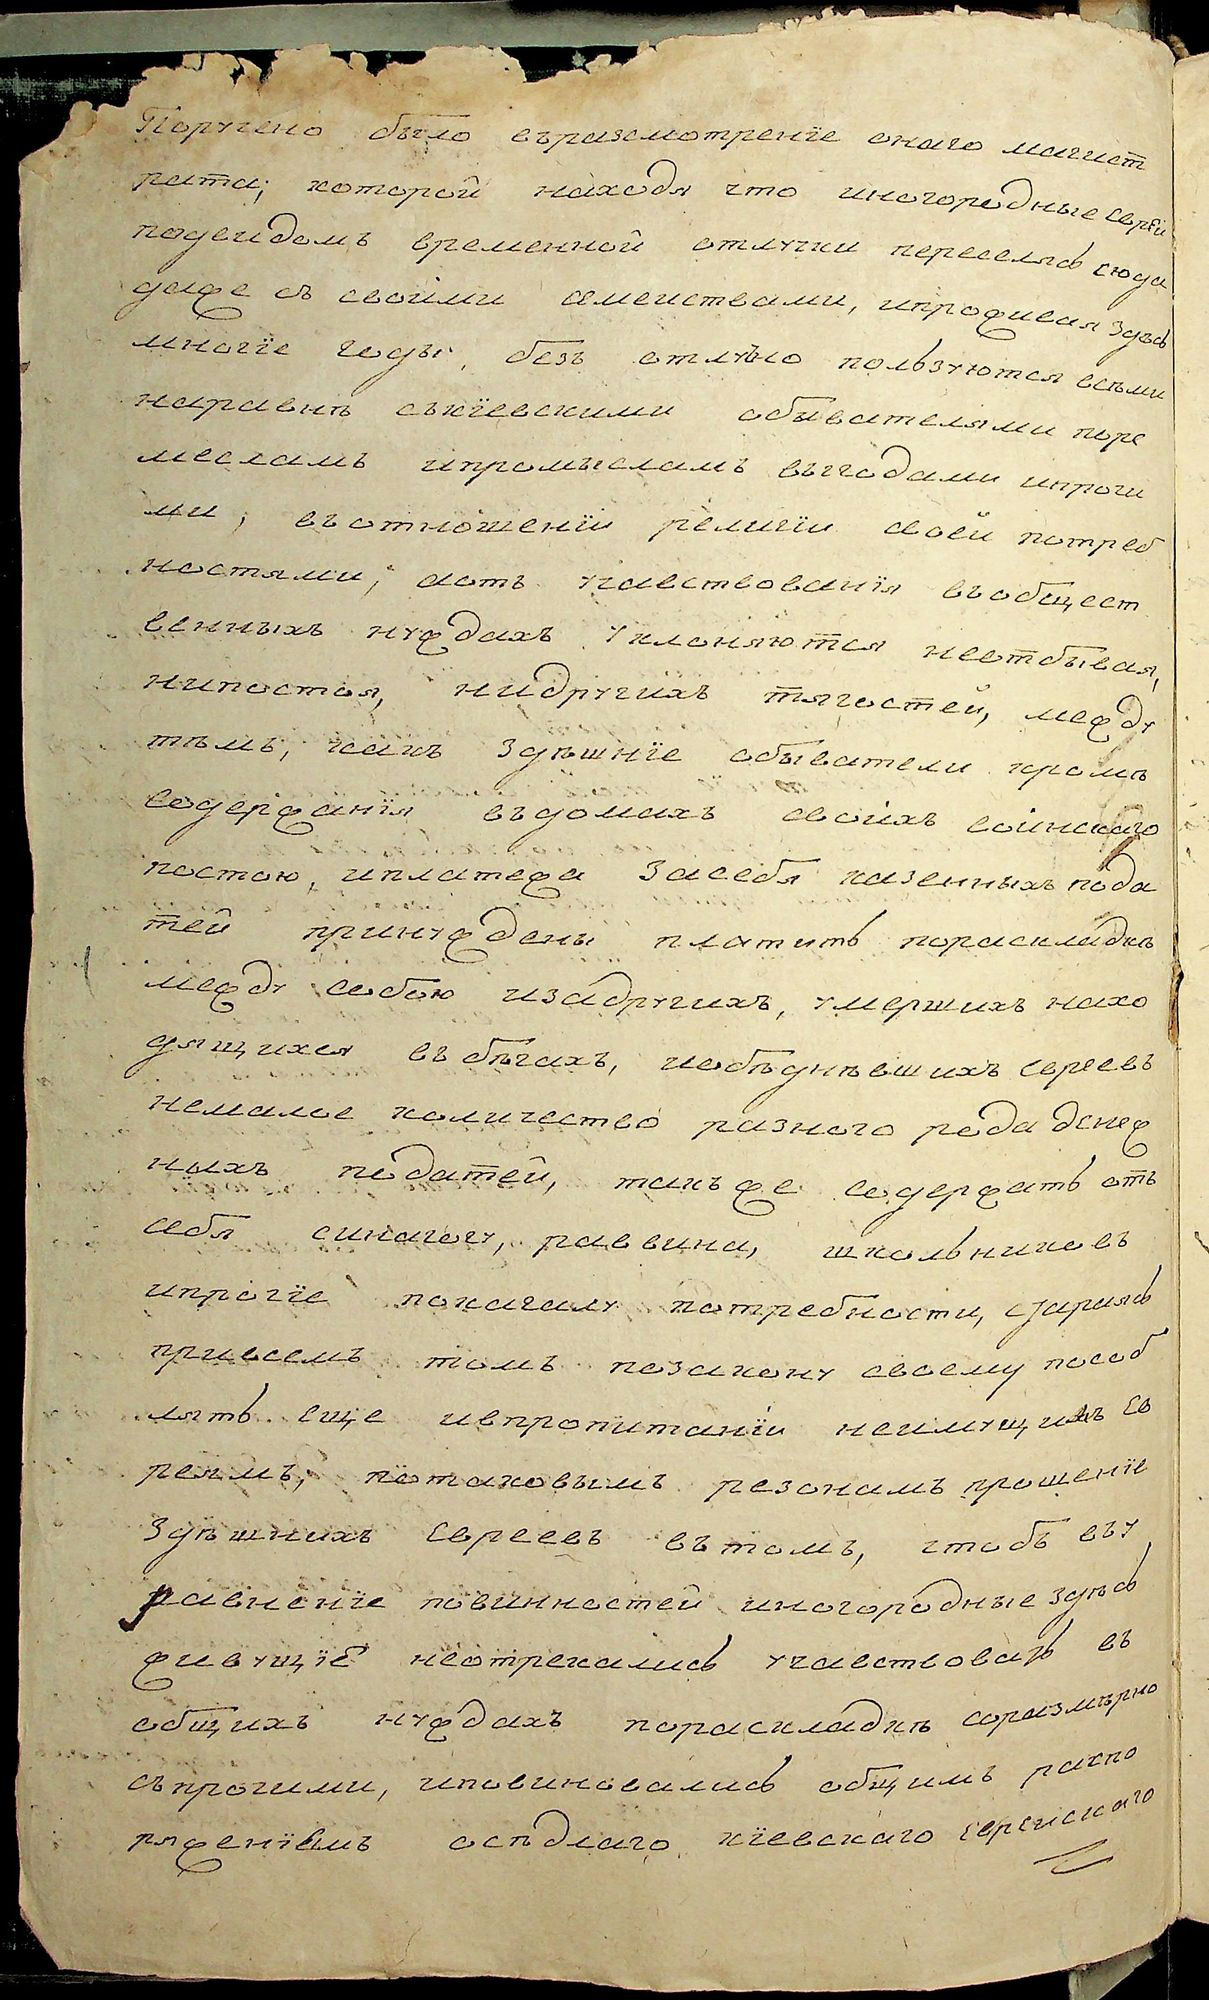 Поручено было въразсмотренїе онаго магист
рата; которой находя что иногородные евреи
подвидомъ временной отлучки переселясь сюда
даже съ своими семеиствами, ипроживая здесь
многїе годы, безъ отлично пользуются всѣми
наравнѣ скїевскими обывателями поре
месламъ ипромысламъ выгодами ипрочи
ми, въотношенїи религїи своей потреб
ностями; аотъ участвованїя въобщест
венныхъ нуждахъ уклоняются неотбывая,
нипостоя, нидругихъ тягостей, между
тѣмъ, какъ здѣшнїе обыватели кромѣ
содержанїя въдомахъ своихъ воинскаго
постою, иплатежа засебя казенныхъ пода
тей принуждены платить пораскладкѣ
между собою изадругихъ, умершихъ нахо
дящихся въбѣгахъ, иобѣднѣвшихъ евреевъ
немалое количество разного рода денеж
ныхъ податей, такъже содержать отъ
себя синагогу, раввина, школьниковъ
ипрочїе покагалу потребности, стараясь
привсемъ томъ позакону своему пособ
лять еще ивпропитанїи неимущимъ ев
реямъ; потаковымъ резонамъ прошенїе
здѣшнихъ евреевъ втомъ, чтобъ въу
равненїе повинностей иногородные здѣсь
живущїе неотрекались участвовать въ
общихъ нуждахъ пораскладкѣ соразмѣрно
съпрочими, иповиновались общимъ распо
ряженїямъ осѣдлаго кїевскаго еврейскаго